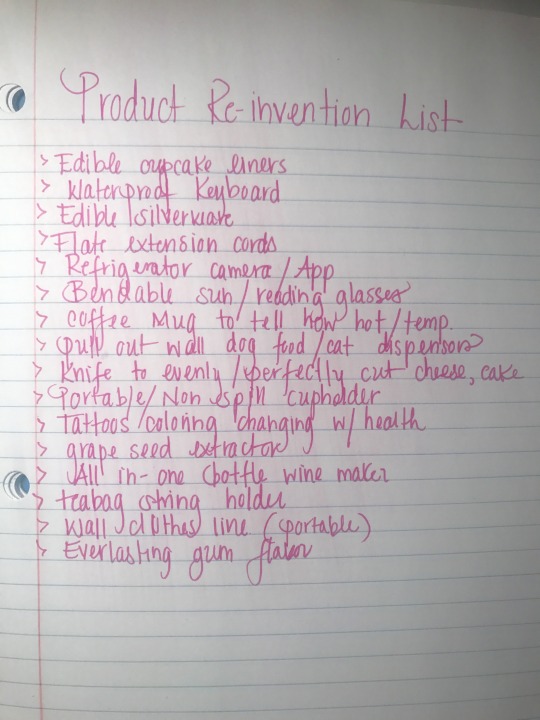 Product Re-invention List
> Edible cupcake liners
> Waterproof Keyboard
> Edible silverware
> Flate extension cords
> Refrigerator camera / App
> Bendable sun / reading glasses
> coffee Mug to tell how hot / temp.
> pull out wall dog food / cat dispensors
> Knife to evenly / perfectly cut cheese, cake
> Portable / Non spill cupholder
> Tattoos coloring changing w/ health
> grape seed extractor
> All in-one bottle wine maker
> teabag string holder
> Wall clothes line (portable)
> Everlasting gum flavor